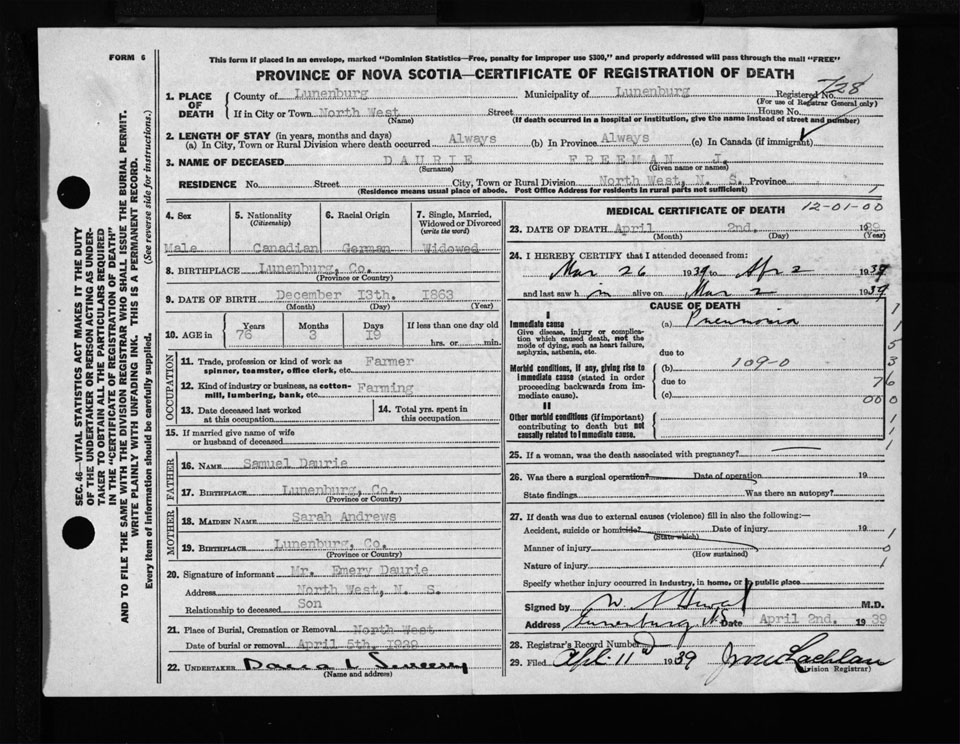 FORM 6
This form if placed in an envelope, marked "Dominion Statistics—Free, penalty for improper use $300," and properly addressed will pass through the mail "FREE"
PROVINCE OF NOVA SCOTIA—CERTIFICATE OF REGISTRATION OF DEATH
728
1. PLACE OF DEATH
County of Lunenburg Municipality of Lunenburg Registered No.
(For use of Registrar General only)
If in City or Town North West Street House No.
(Name) (If death occurred in a hospital or institution, give the name instead of street and number)
2. LENGTH OF STAY (in years, months and days)
(a) In City, Town or Rural Division where death occurred Always (b) In Province Always (c) In Canada (if immigrant)
3. NAME OF DECEASED DAURIE FREEMAN J.
(Surname) (Given name or names)
RESIDENCE No. Street City, Town or Rural Division North West, N. S. Province 1
(Residence means usual place of abode. Post Office Address for residents in rural parts not sufficient)
4. Sex
Male
5. Nationality
(Citizenship)
Canadian
6. Racial Origin
German
7. Single, Married, Widowed or Divorced
(write the word)
Widowed
8. BIRTHPLACE Lunenburg, Co.
(Province or Country)
9. DATE OF BIRTH December 13th. 1863
(Month) (Day) (Year)
10. AGE in
Years Months Days If less than one day old
76 3 19 hrs. or min.
OCCUPATION
11. Trade, profession or kind of work as Farmer
spinner, teamster, office clerk, etc.
12. Kind of industry or business, as cotton- Farming
mill, lumbering, bank, etc.
13. Date deceased last worked at this occupation
14. Total yrs. spent in this occupation
15. If married give name of wife
or husband of deceased
FATHER
16. NAME Samuel Daurie
17. BIRTHPLACE Lunenburg, Co.
(Province or Country)
MOTHER
18. MAIDEN NAME Sarah Andrews
19. BIRTHPLACE Lunenburg, Co.
(Province or Country)
20. Signature of informant Mr. Emery Daurie
Address North West, N. S.
Relationship to deceased Son
21. Place of Burial, Cremation or Removal North West
Date of burial or removal April 5th. 1939
22. UNDERTAKER
(Name and address)
MEDICAL CERTIFICATE OF DEATH 12-01-00
23. DATE OF DEATH April 2nd. 1939
(Month) (Day) (Year)
24. I HEREBY CERTIFY that I attended deceased from:
Mar 26 1939 to Apr 2 1939
and last saw h im alive on Mar 2 1939
CAUSE OF DEATH
I
Immediate cause (a) Pneumonia
Give disease, injury or complication which caused death, not the mode of dying, such as heart failure, asphyxia, asthenia, etc.
due to
Morbid conditions, if any, giving rise to immediate cause (stated in order proceeding backwards from immediate cause).
(b) 109-0
due to
(c)
II
Other morbid conditions (if important) contributing to death but not causally related to immediate cause.
1
1
5
3
76
000
1
1
25. If a woman, was the death associated with pregnancy?
26. Was there a surgical operation? Date of operation 19
State findings Was there an autopsy?
27. If death was due to external causes (violence) fill in also the following:—
Accident, suicide or homicide? Date of injury 19 1
(State which)
Manner of injury 0
(How sustained)
Nature of injury 1
Specify whether injury occurred in industry, in home, or in public place
Signed by M.D.
Address Lunenburg N.S. Date April 2nd. 1939
28. Registrar's Record Number
29. Filed April 11th 1939
(Division Registrar)
SEC. 46—VITAL STATISTICS ACT MAKES IT THE DUTY
OF THE UNDERTAKER OR PERSON ACTING AS UNDER-
TAKER TO OBTAIN ALL THE PARTICULARS REQUIRED
IN THE "CERTIFICATE OF REGISTRATION OF DEATH"
AND TO FILE THE SAME WITH THE DIVISION REGISTRAR WHO SHALL ISSUE THE BURIAL PERMIT.
WRITE PLAINLY WITH UNFADING INK. THIS IS A PERMANENT RECORD.
Every item of information should be carefully supplied. (See reverse side for instructions.)